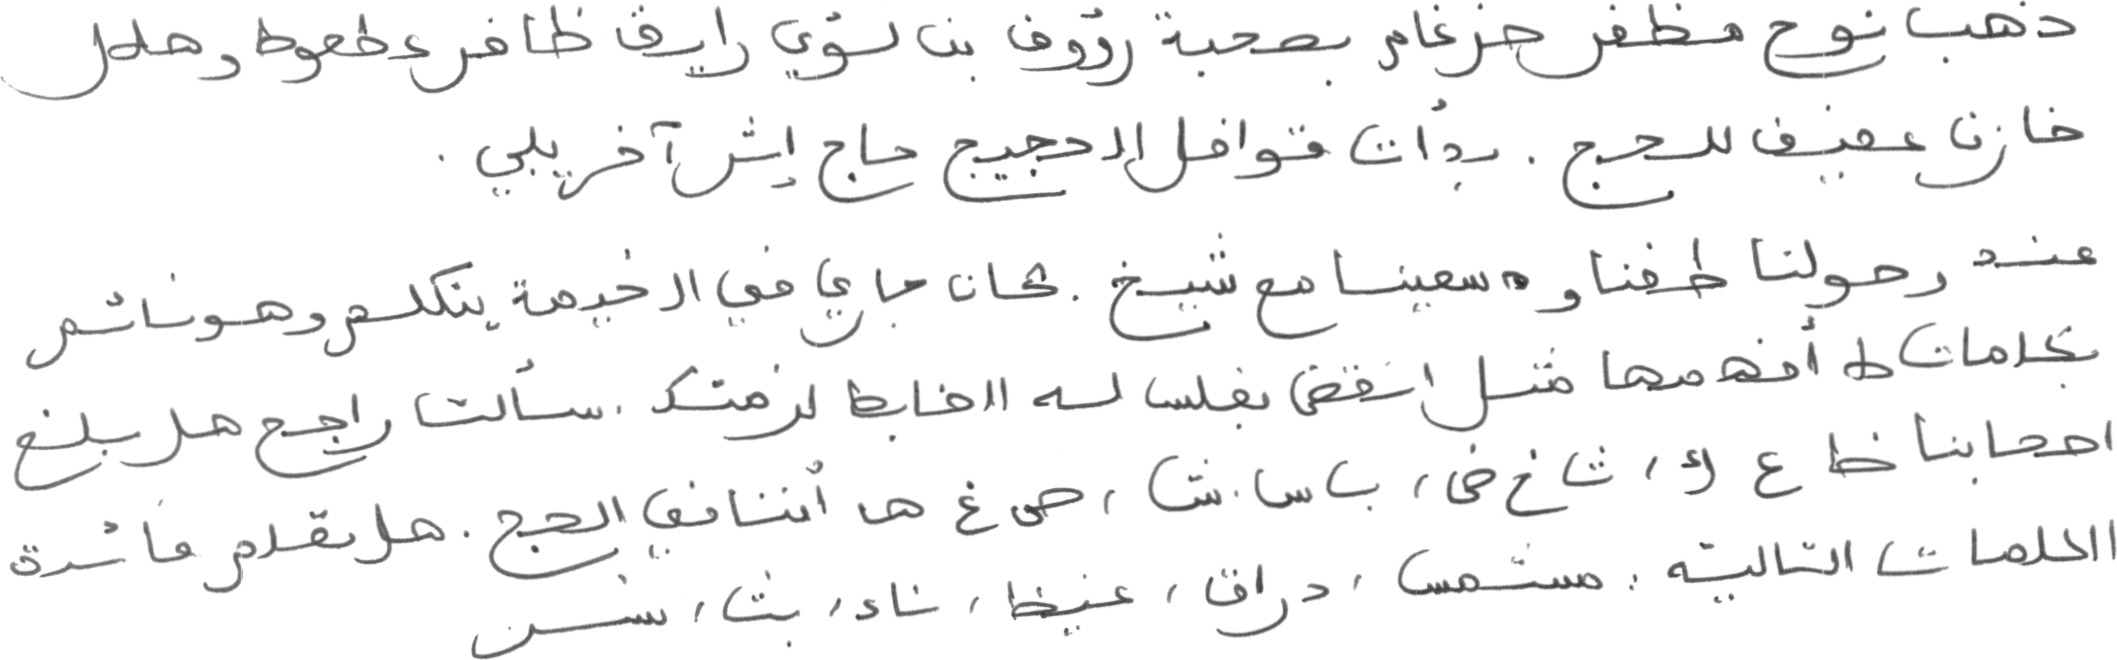 ذهب نوح مظفر ضرغام بصحبة رؤوف بن لؤي رايق ظافر عطعوط وهلال
خازن عفيف للحج . بدأت قوافل الحجيج حاج إش آخر يلي .
عند وصولنا طفنا وسعينا مع شيخ . كان جاري في الخيمة يتكلم وهو نائم
بكلمات لا أفهمها مثل نفلس له الضابط لزمتك . سألت راجح هل بلغ
اصحابنا ظ ع ك ، ث خ ض ، ب س ش ، ص غ هـ أننا في الحج . هل تقدم مائدة
الكلمات التالية : مستمس ، دراق ، غيظ ، ناء ، بث ، شن